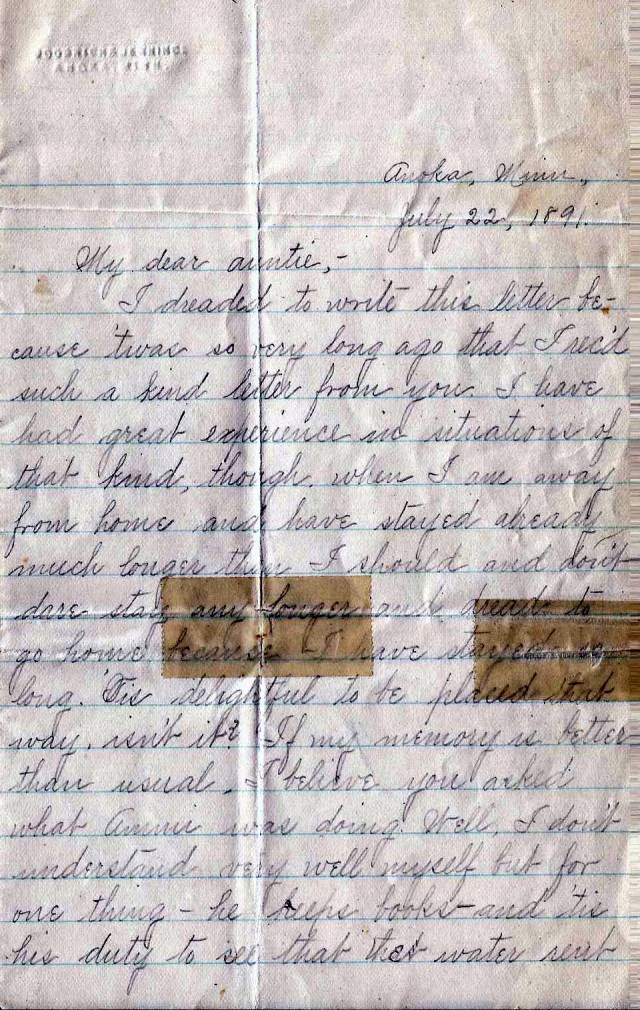 Anoka, Minn.,
July 22, 1891.
My dear auntie,-
I dreaded to write this letter be-
cause 'twas so very long ago that I rec'd
such a kind letter from you. I have
had great experience in situations of
that kind, though. when I am away
from home and have stayed already
much longer than I should and don't
dare stay any longer and dread to
go home because I have stayed so
long. 'Tis delightful to be placed that
way, isn't it? If my memory is better
than usual, I believe you asked
what was doing. Well, I don't
understand very well myself but for
one thing - he keeps books - and 'tis
his duty to see that the water rent